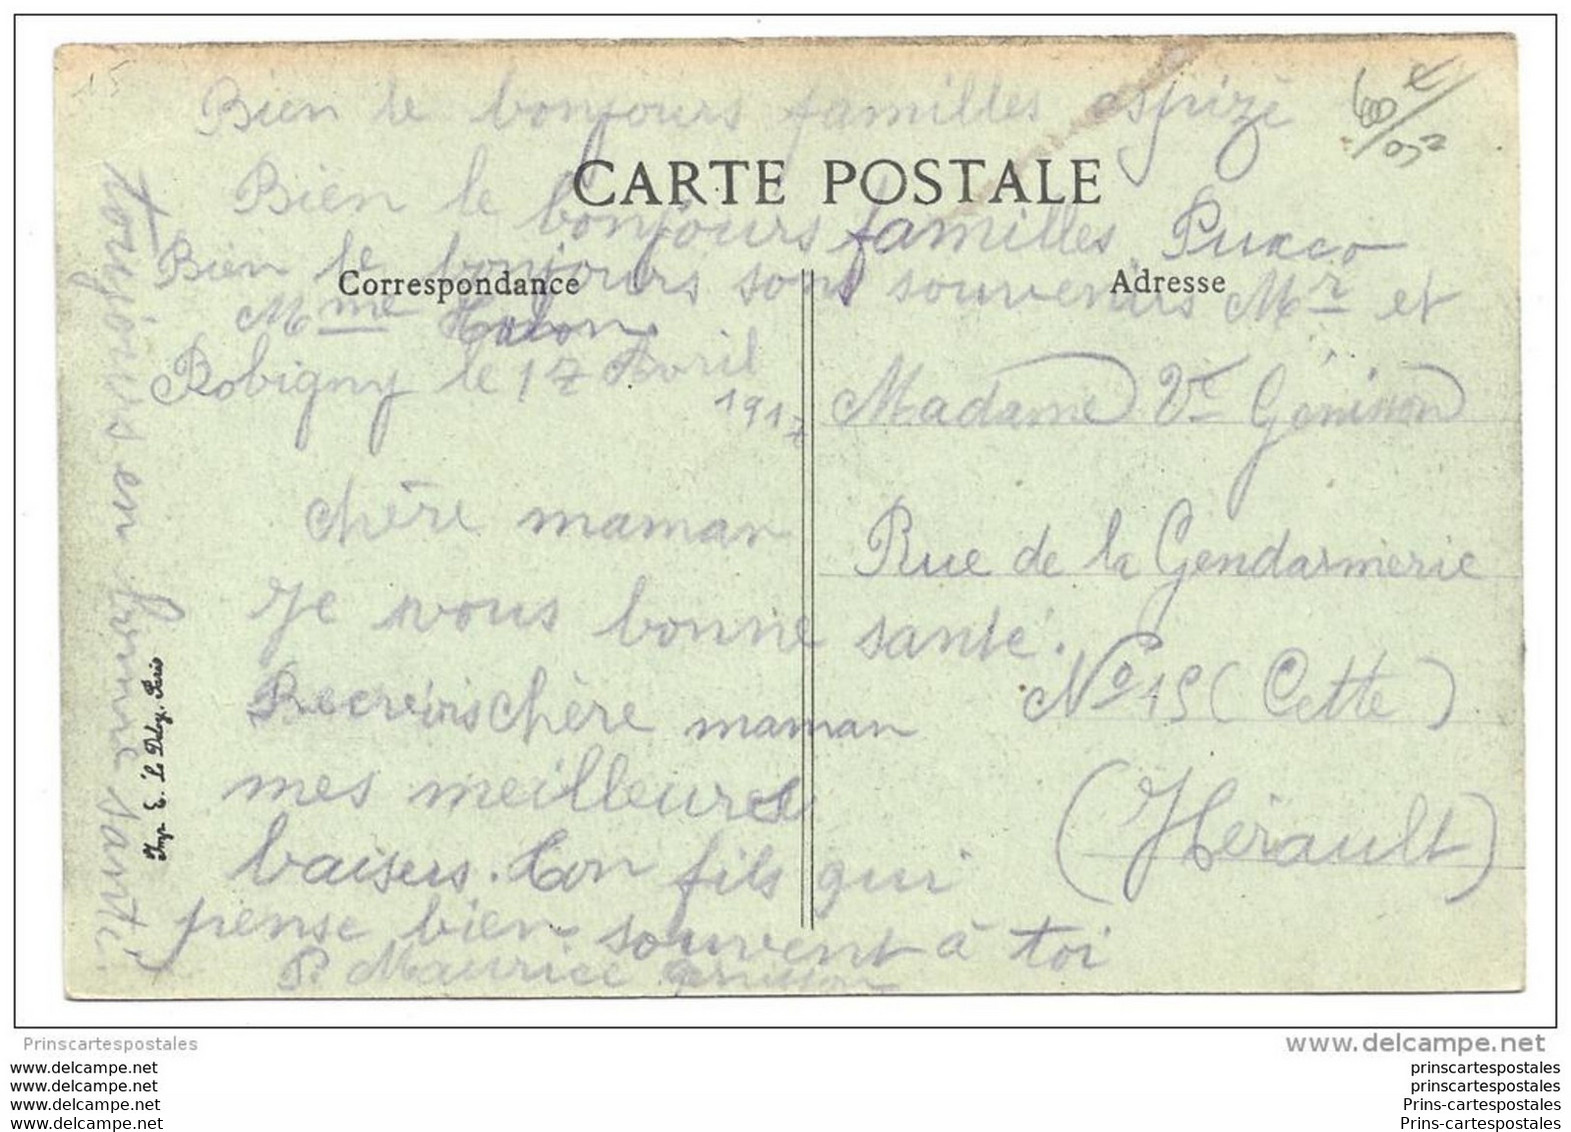 15
Bien le bonjours familles espizé
CARTE POSTALE
Bien le bonjours familles Puxco
Bien le bonjours sont souvenirs Mr et
Mme
Correspondance
Adresse
Robigny le 17 Avril
1917
chère maman
Je vous bonne santé.
Recreivris chère maman
mes meilleures
baisers. Ton fils qui
pense bien souvent à toi
P. Maurice Génisson
toujours en bonne santé.
Imp. E. Le Deley, Paris
Madame Ve Génisson
Rue de la Gendarmerie
No 15 (Cette)
(Hérault)
Prinscartespostales
www.delcampe.net
www.delcampe.net
www.delcampe.net
www.delcampe.net
www.delcampe.net
prinscartespostales
prinscartespostales
Prins-cartespostales
Prins-cartespostales